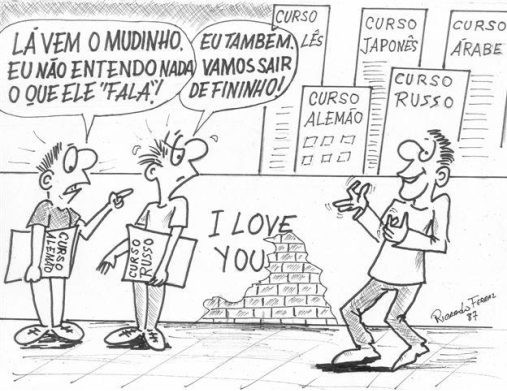 LÁ VEM O MUDINHO.
EU NÃO ENTENDO NADA
O QUE ELE "FALA"!
EU TAMBÉM.
VAMOS SAIR
DE FININHO!
CURSO
LÊS
CURSO
JAPONÊS
CURSO
ÁRABE
CURSO
ALEMÃO
CURSO
RUSSO
I LOVE
YOU
CURSO
ALEMÃO
CURSO
RUSSO
RICARDO FERRAZ
87